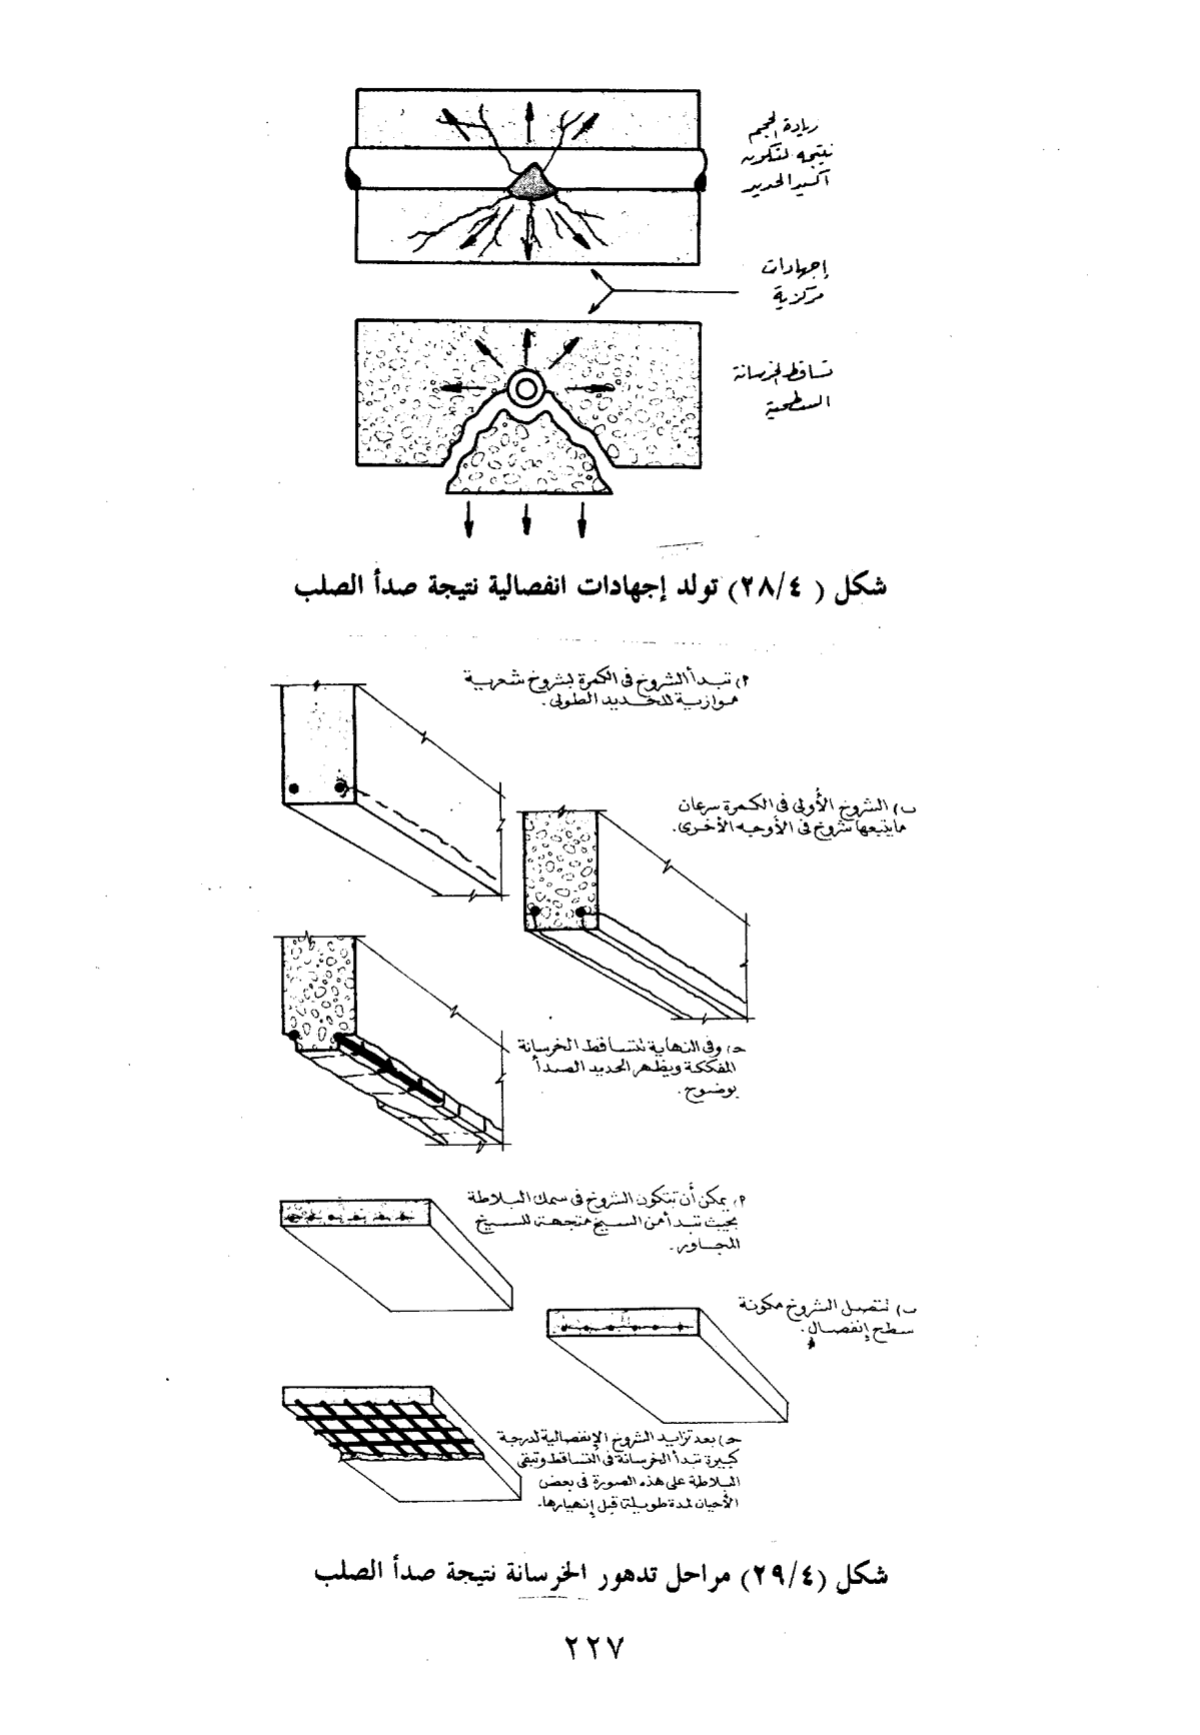 زيادة الحجم
نتيجه لتكون
أكسيد الحديد
إجهادات
مركزية
تساقط الخرسانة
السطحية
شكل ( ٢٨/٤) تولد إجهادات انفصالية نتيجة صدأ الصلب
م) تبدأ الشروخ فى الكمرة بشروخ شعرية
موازية للحديد الطولى.
ب) الشروخ الأولى فى الكمرة سرعان
مايتبعها شروخ فى الأوجه الأخرى.
حـ) وفى النهاية تتساقط الخرسانة
المفككة ويظهر الحديد الصدأ
بوضوح.
م) يمكن أن تتكون الشروخ فى سمك البلاطة
بحيث تبدأ من السيخ متجهة للسيخ
المجاور.
ب) تتصل الشروخ مكونة
سطح إنفصال.
حـ) بعد تزايد الشروخ الإنفصالية لدرجة
كبيرة تبدأ الخرسانة فى التساقط وتبقى
البلاطة على هذه الصورة فى بعض
الأحيان لمدة طويلة قبل إنهيارها.
شكل (٢٩/٤) مراحل تدهور الخرسانة نتيجة صدأ الصلب
٢٢٧